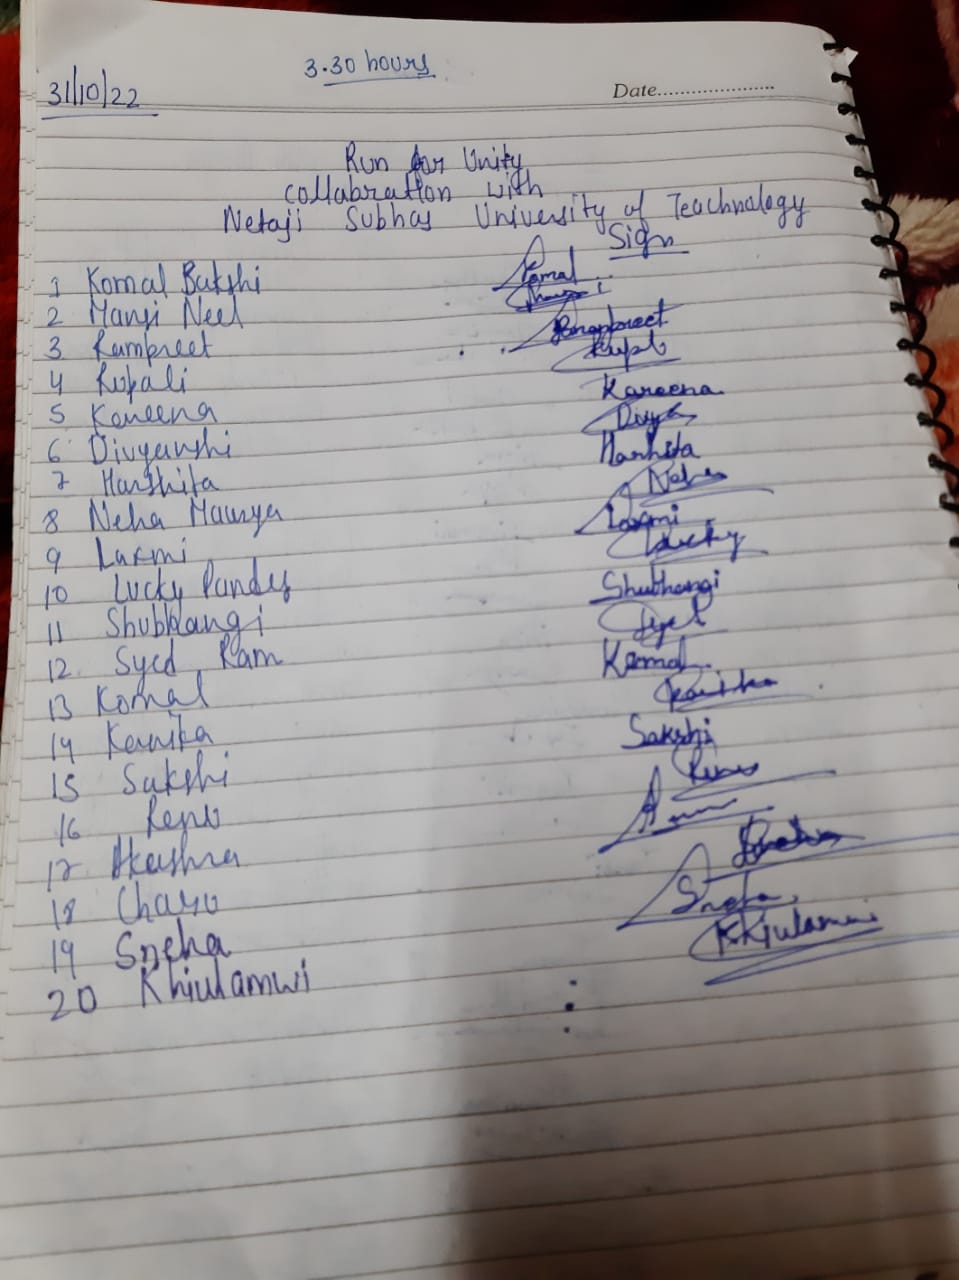 3.30 hours
31/10/22
Date....................
Run for Unity
collabration with
Netaji Subhas University of Teachnology
Sign
1 Komal Bakshi Komal
2 Manji Neel
3 Rampreet Ramppreet
4 Rupali
5 Kareena Kareena
6 Divyanshi Divya
7 Harshita Harshita
8 Neha Maurya Neha
9 Laxmi Laxmi
10 Lucky Pandey Lucky
11 Shubhangi Shubhangi
12. Syed Ram Syed
13 Komal Komal
14 Kanika Kanika
15 Sakshi Sakshi
16 Renu Renu
17
18 Charu
19 Sneha Sneha
20 Khiulamwi Khiulamwi